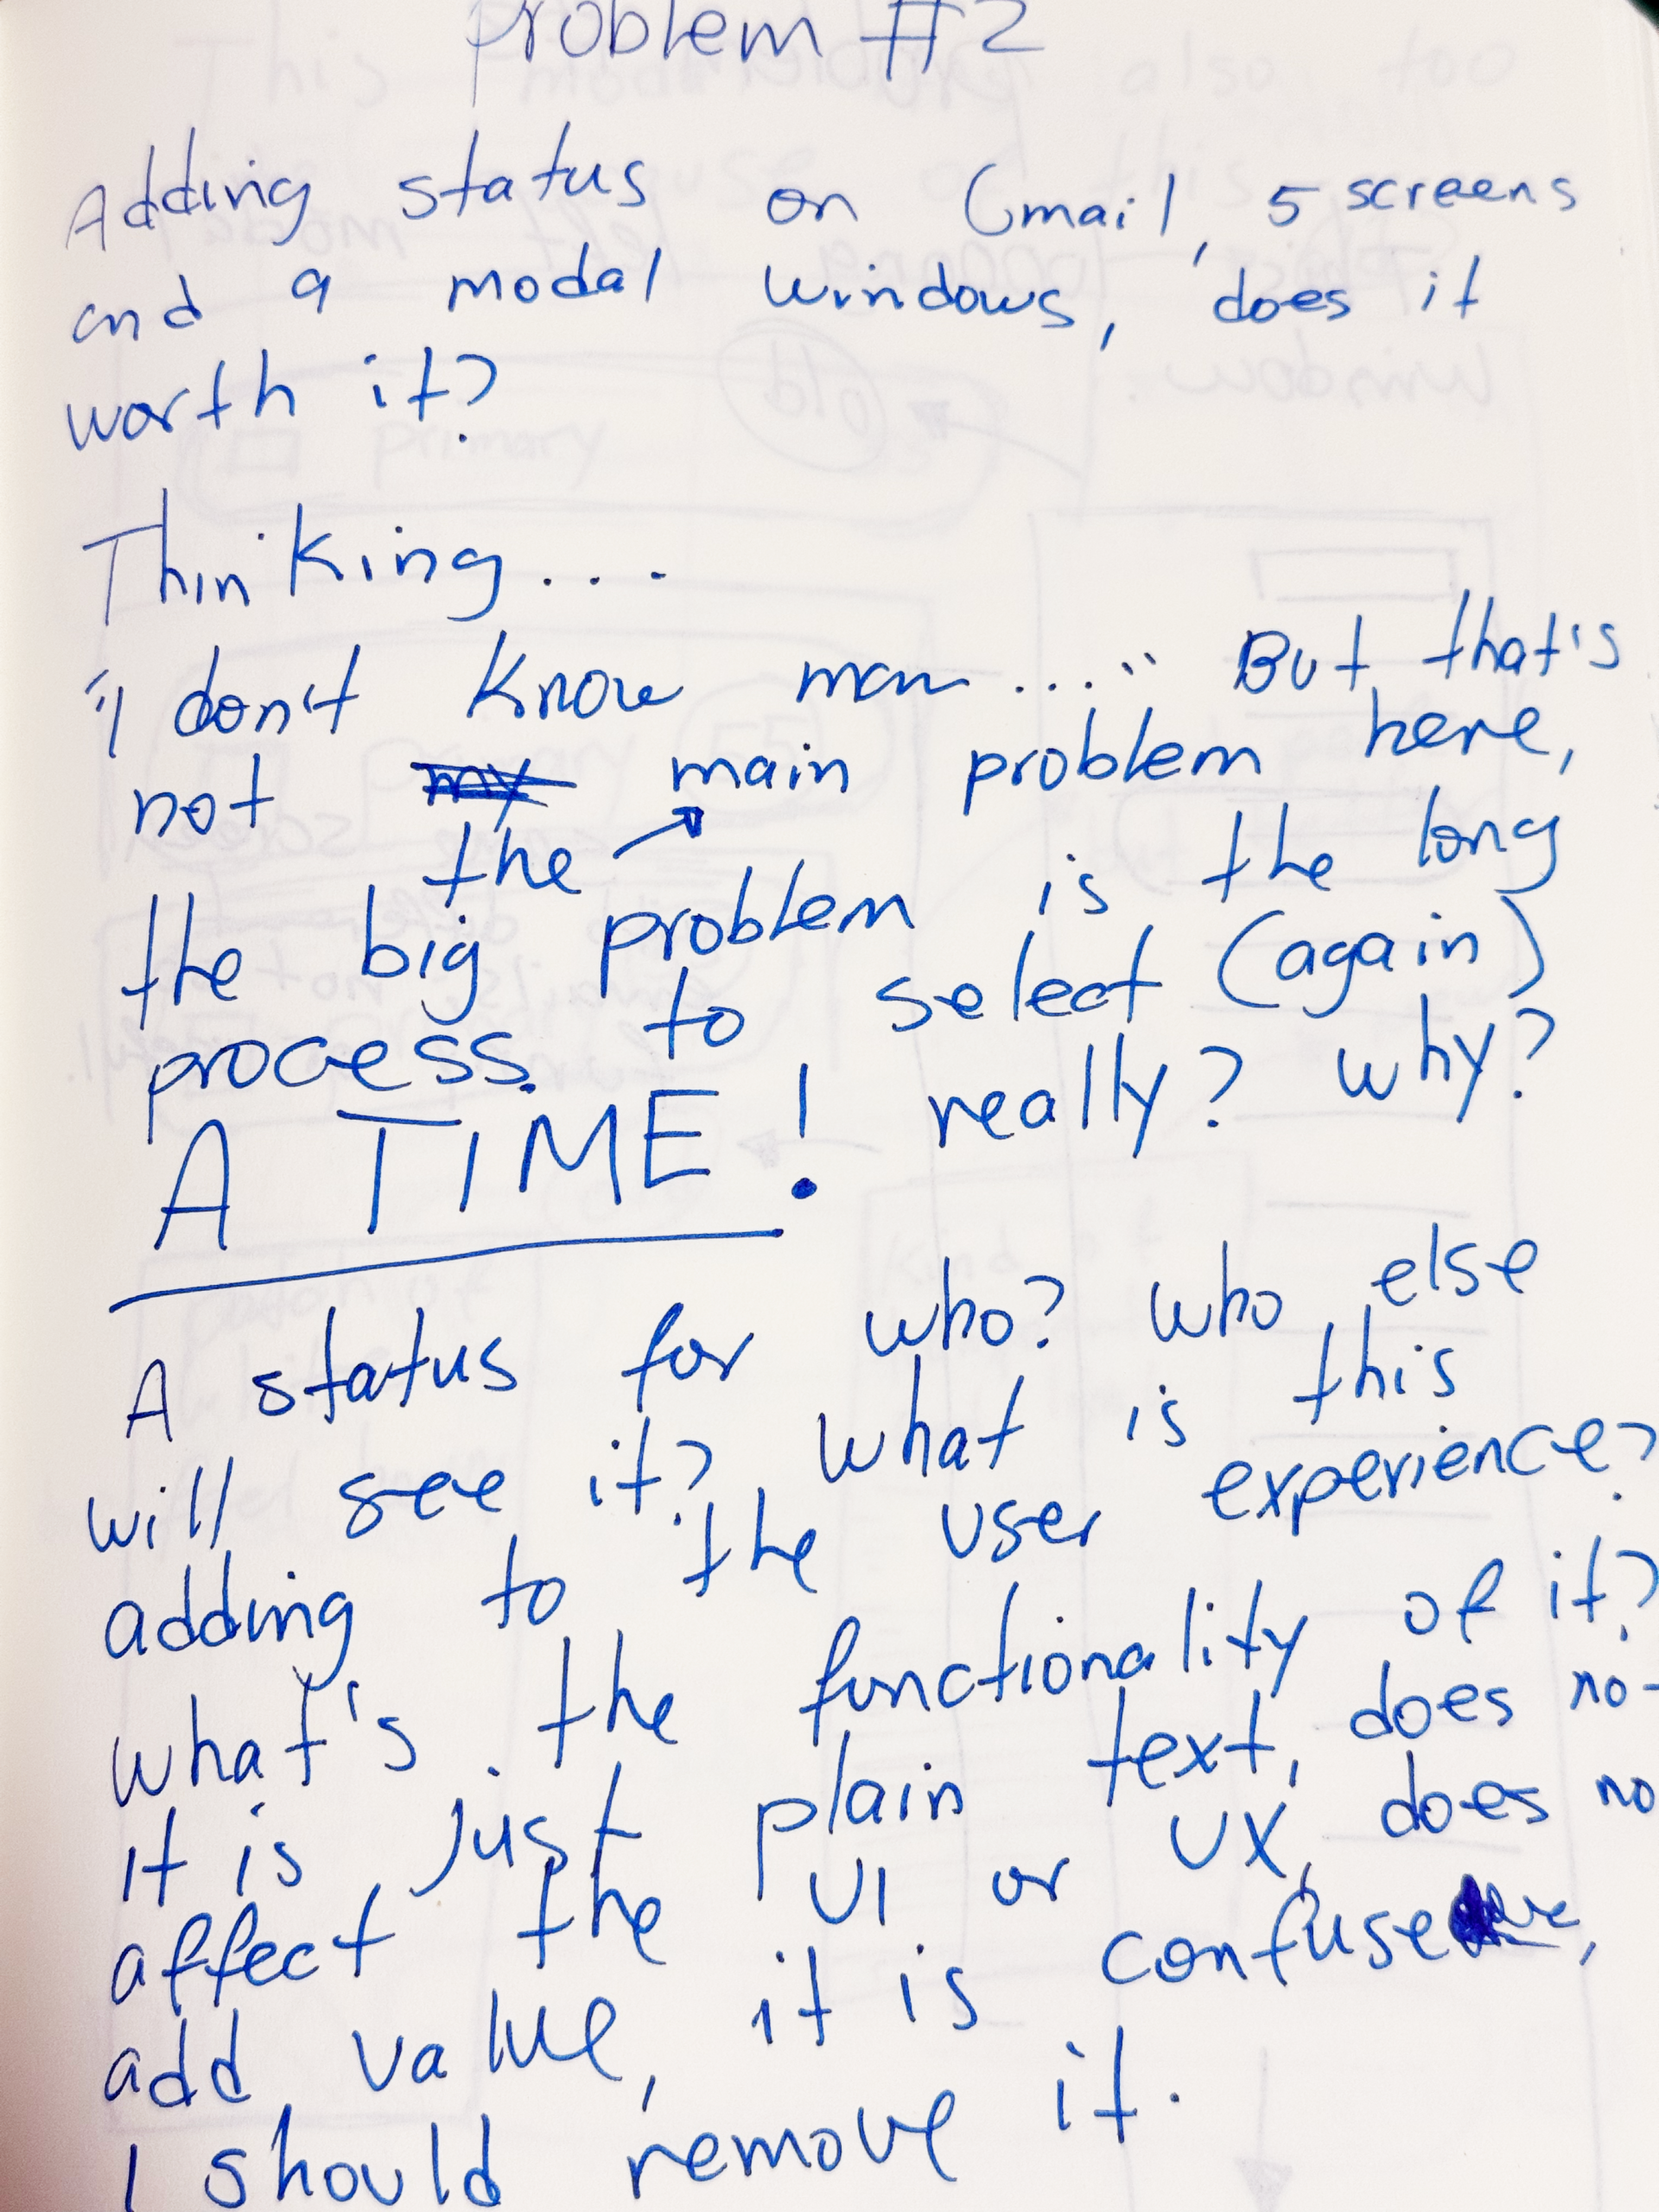 Problem #2
Adding status on Gmail, 5 screens
and a modal windows, does it
worth it?
Thinking...
"I don't know man...." But that's
not my main problem here,
the
the big problem is the long
process to select (again)
A TIME! really? why?
A status for who? who else
will see it? what is this
adding to the user experience?
what's the functionality of it?
it is just plain text, does no
affect the UI or UX, does no
add value, it is confuse,
I should remove it.